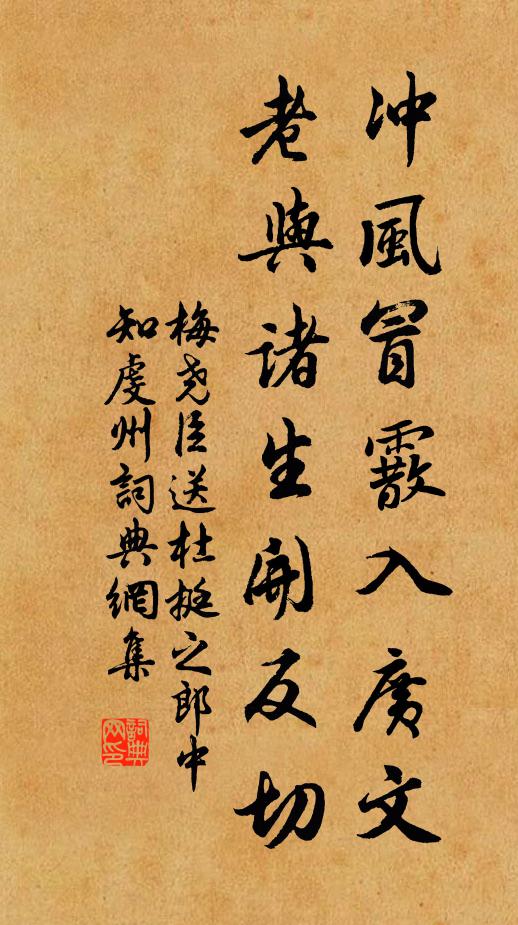 冲風冒霰入廣文
老與諸生開反切
梅堯臣送杜挺之郎中
知虔州詞典網集
詞典
网印